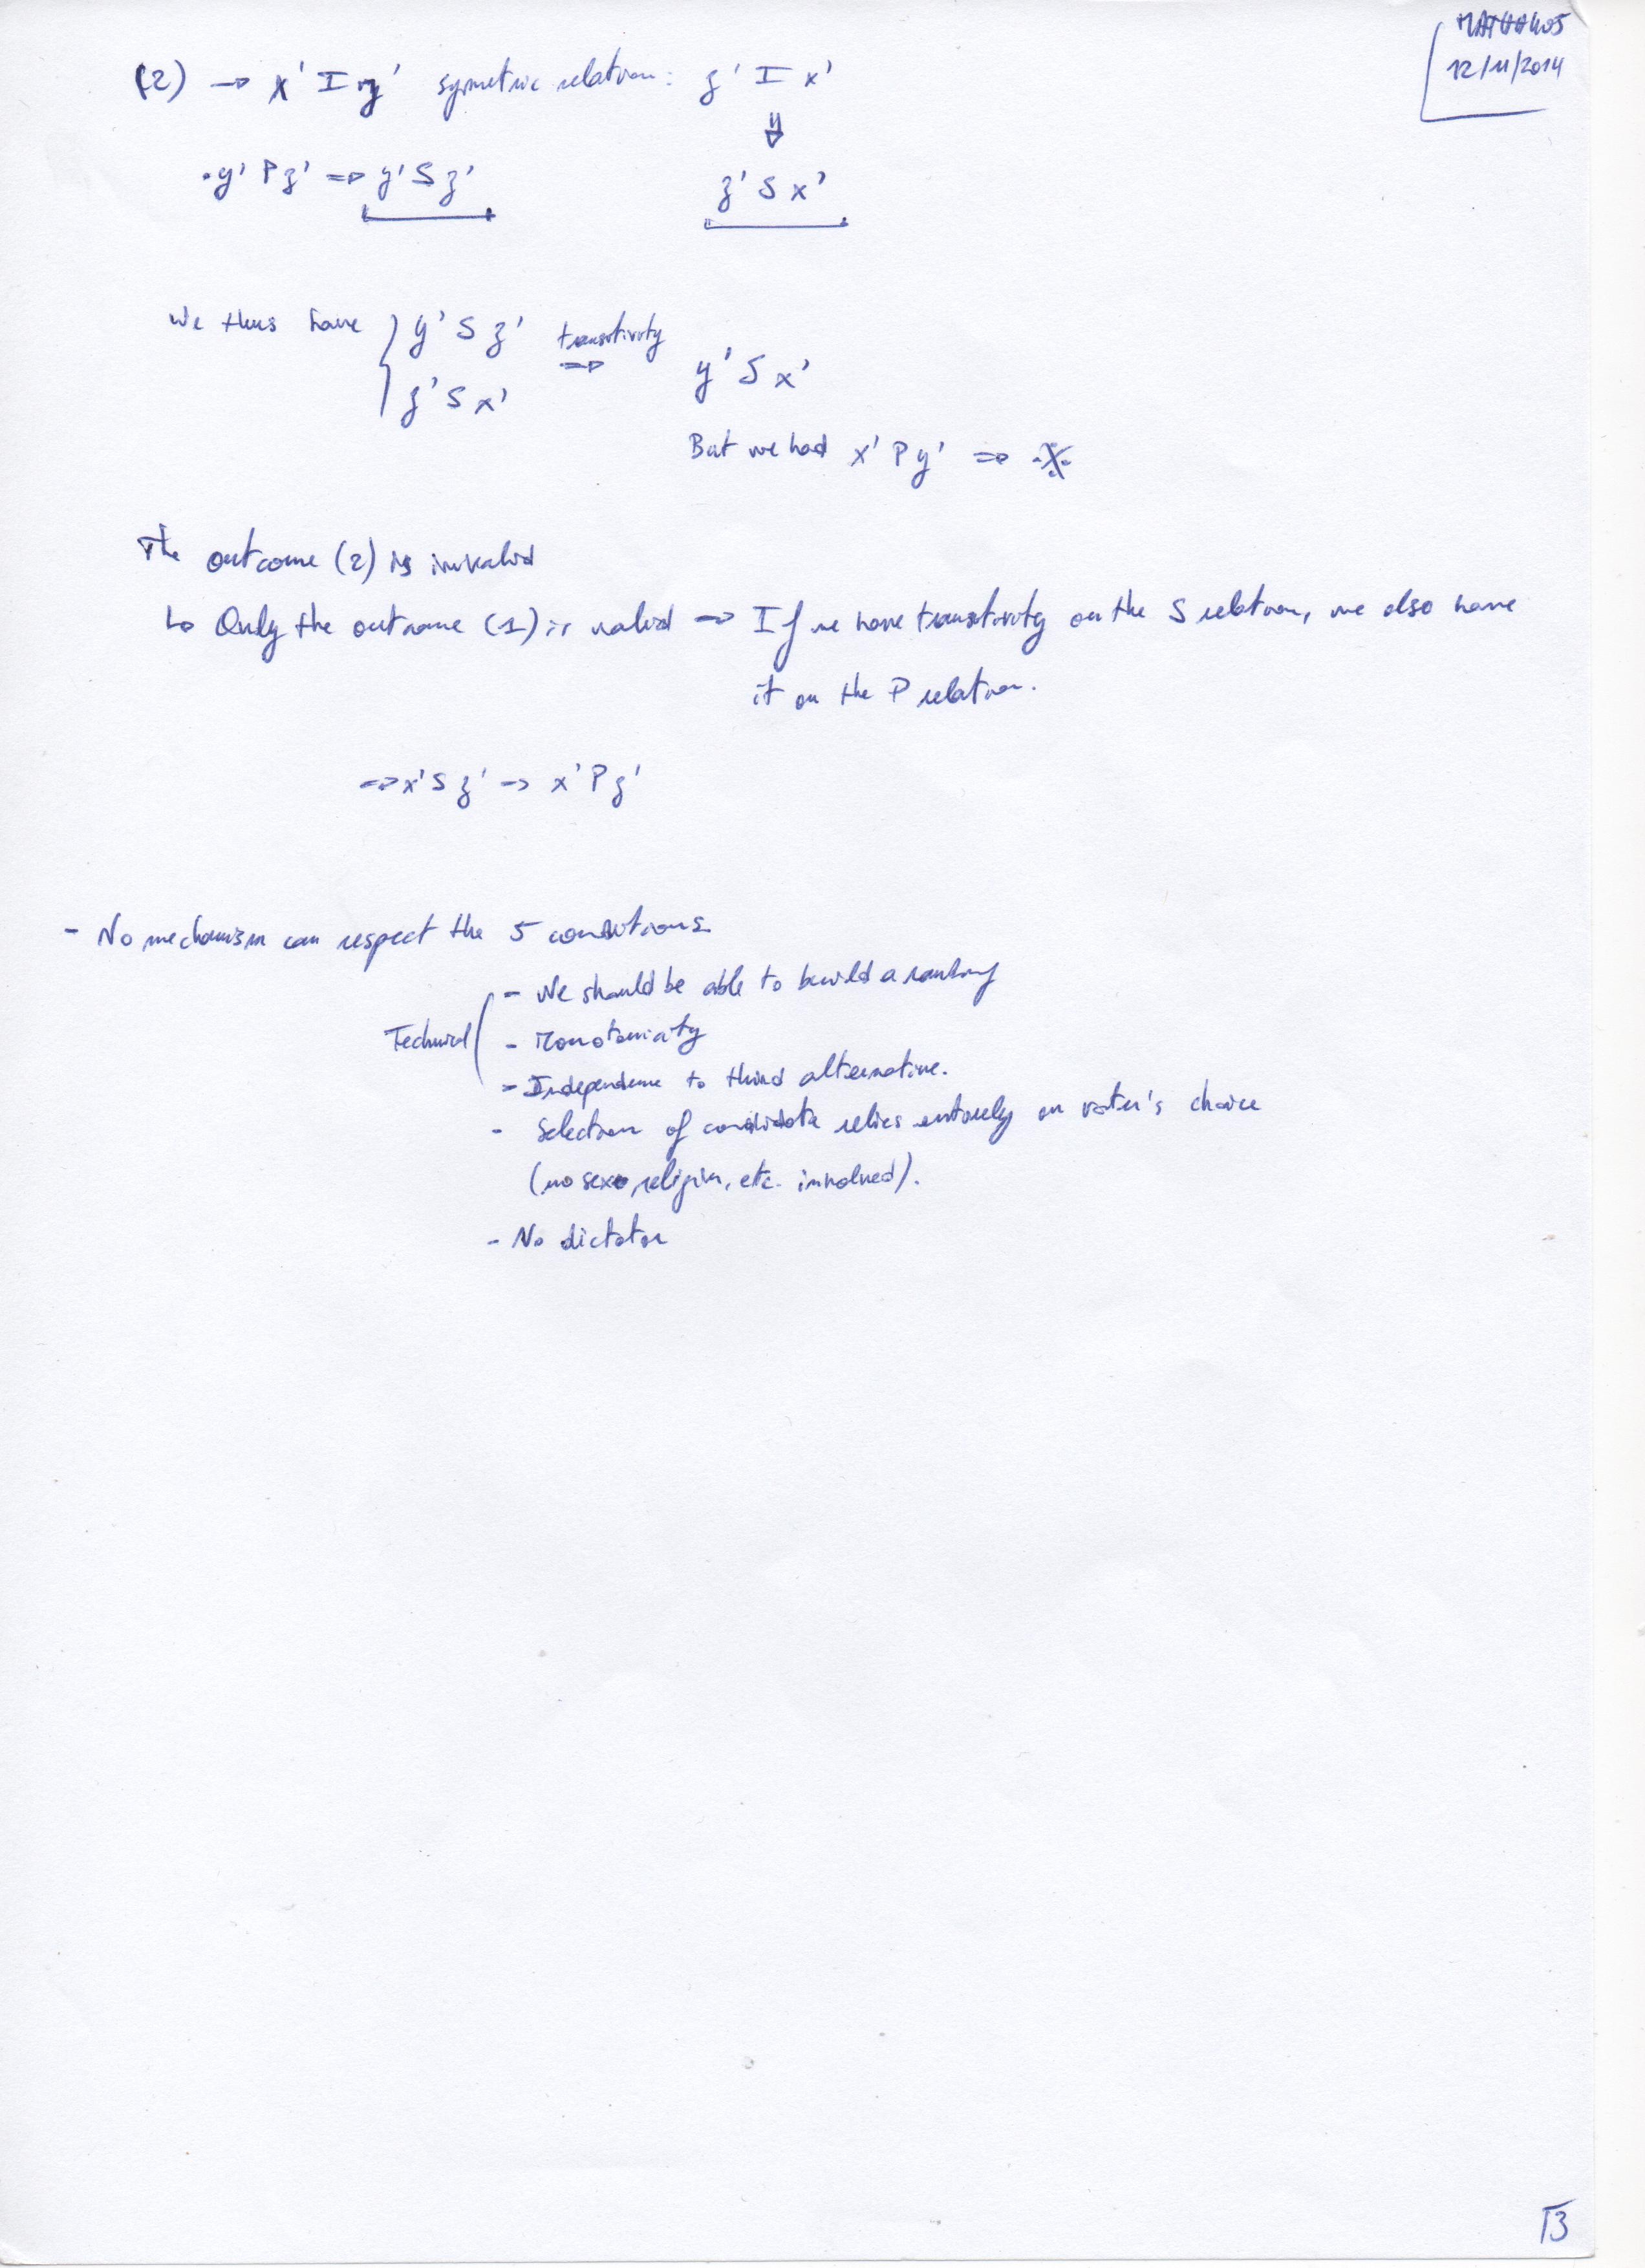 MATH H405
12/11/2014
(2) → x' I z' symetric relation: z' I x'
⇓
• y' P z' ⇒ y' S z'
z' S x'
We thus have { y' S z' transitivity ⇒ y' S x'
z' S x'
But we had x' P y' ⇒
The outcome (2) is invalid
↳ Only the outcome (1) is valid → If we have transitivity on the S relation, we also have
it on the P relation.
⇒ x' S z' → x' P z'
- No mechanism can respect the 5 conditions
- We should be able to build a ranking
Technical
- Monotonicity
- Independence to third alternative.
- Selection of candidate relies entirely on voter's choice
(no sexe, religion, etc. involved).
- No dictator
13